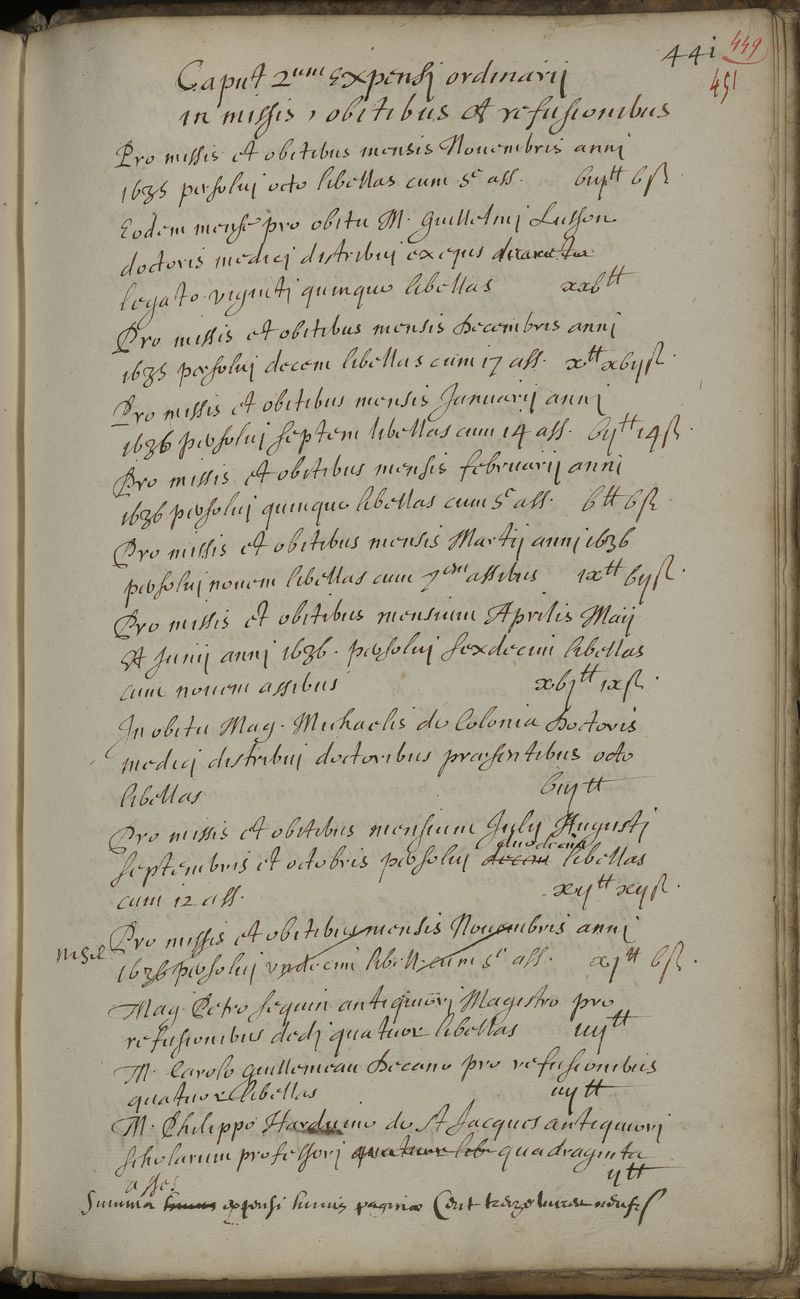 441 449
451
Caput 2um Expensj ordinarij
in missis, obitibus et refusionibus
Pro missis et obitibus mensis Nouembris annj
1635 persoluj octo libellas cum 5e ass. biijtt bſ
Eodem mense pro obitu M. Guillelmj Lusson
doctoris medicj distribuj ex ejus
legato vigintj quinque libellas xxbtt
Pro missis et obitibus mensis Decembris annj
1635 persoluj decem libellas cum 17 ass. xtt xbijſ.
Pro missis et obitibus mensis Januarij annj
1636 persoluj septem libellas cum 14 ass. bijtt 14ſ.
Pro missis et obitibus mensis februarij annj
1636 persoluj quinque libellas cum 5e ass. btt bſ.
Pro missis et obitibus mensis Martij annj 1636
persoluj nouem libellas cum 7em assibus ixtt bijſ.
Pro missis et obitibus mensium Aprilis Maij
et Junij annj 1636. persoluj sexdecim libellas
cum nouem assibus xbjtt ixſ.
In obitu Mag. Michaelis de Colonia Doctoris
medicj distribuj doctoribus præsentibus octo
libellas biijtt
Pro missis et obitibus mensium Julij Augustj
duodecim
septembris et octobris persoluj decem libellas
cum 12 ass. xijtt xijſ.
Pro missis et obitibus mensis Nouembris annj
1636 persoluj vndecim libell. cum 5e ass. xjtt bſ.
Mag. Petro seguin antiquiorj Magistro pro
refusionibus dedj quatuor libellas iiijtt
M. Carolo guillemeau Decano pro refusionibus
quatuor libellas iiijtt
M. Philippo Harduino de St Jacques antiquiorj
scholarum professorj quatuor lib quadraginta
asses ijtt
Summa expensi huius paginæ Cent treize liures neuf ſ